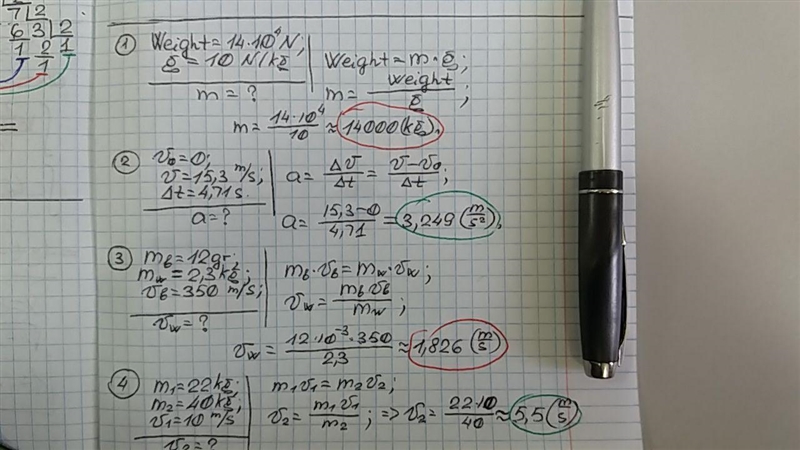 7|2
6 3|2
1 2 1
1
=
① Weight = 14·10⁴N;
g = 10 N/kg
m = ?
Weight = m·g;
m = weight/g;
m = 14·10⁴/10 ≈ 14000(kg).
② v₀=0;
v=15,3 m/s;
Δt=4,71 s.
a=?
a = Δv/Δt = v-v₀/Δt;
a = 15,3-0/4,71 = 3,249 (m/s²).
③ m₆=12gr;
m_w=2,3kg;
v₆=350 m/s;
v_w=?
m₆·v₆=m_w·v_w;
v_w = m₆v₆/m_w;
v_w = 12·10⁻³·350/2,3 ≈ 1,826 (m/s)
④ m₁=22kg;
m₂=40kg;
v₁=10 m/s
v₂=?
m₁v₁=m₂v₂;
v₂ = m₁v₁/m₂; => v₂ = 22·10/40 ≈ 5,5 (m/s)